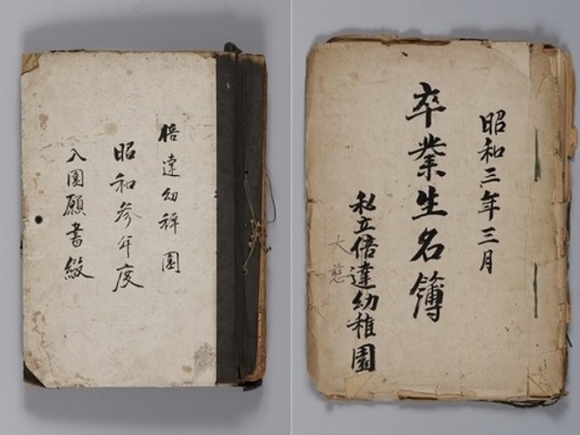 倍達幼稚園
昭和参年度
入園願書綴
昭和三年三月
卒業生名簿
私立倍達幼稚園
大